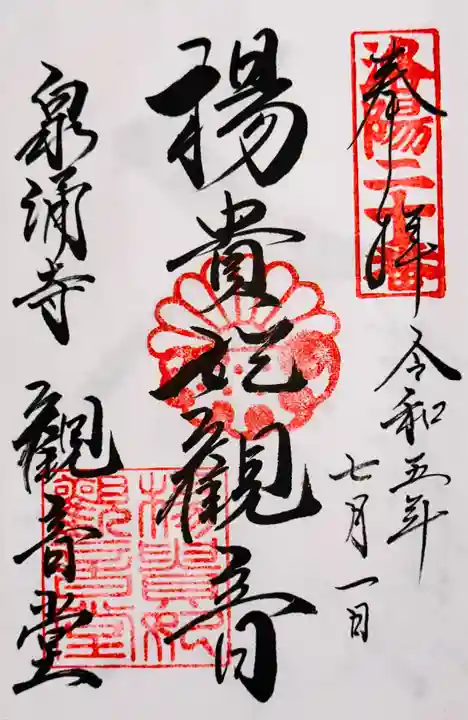 奉拝
洛陽二十番
令和五年
七月一日
楊貴妃観音
楊貴妃
観音堂
泉涌寺 観音堂